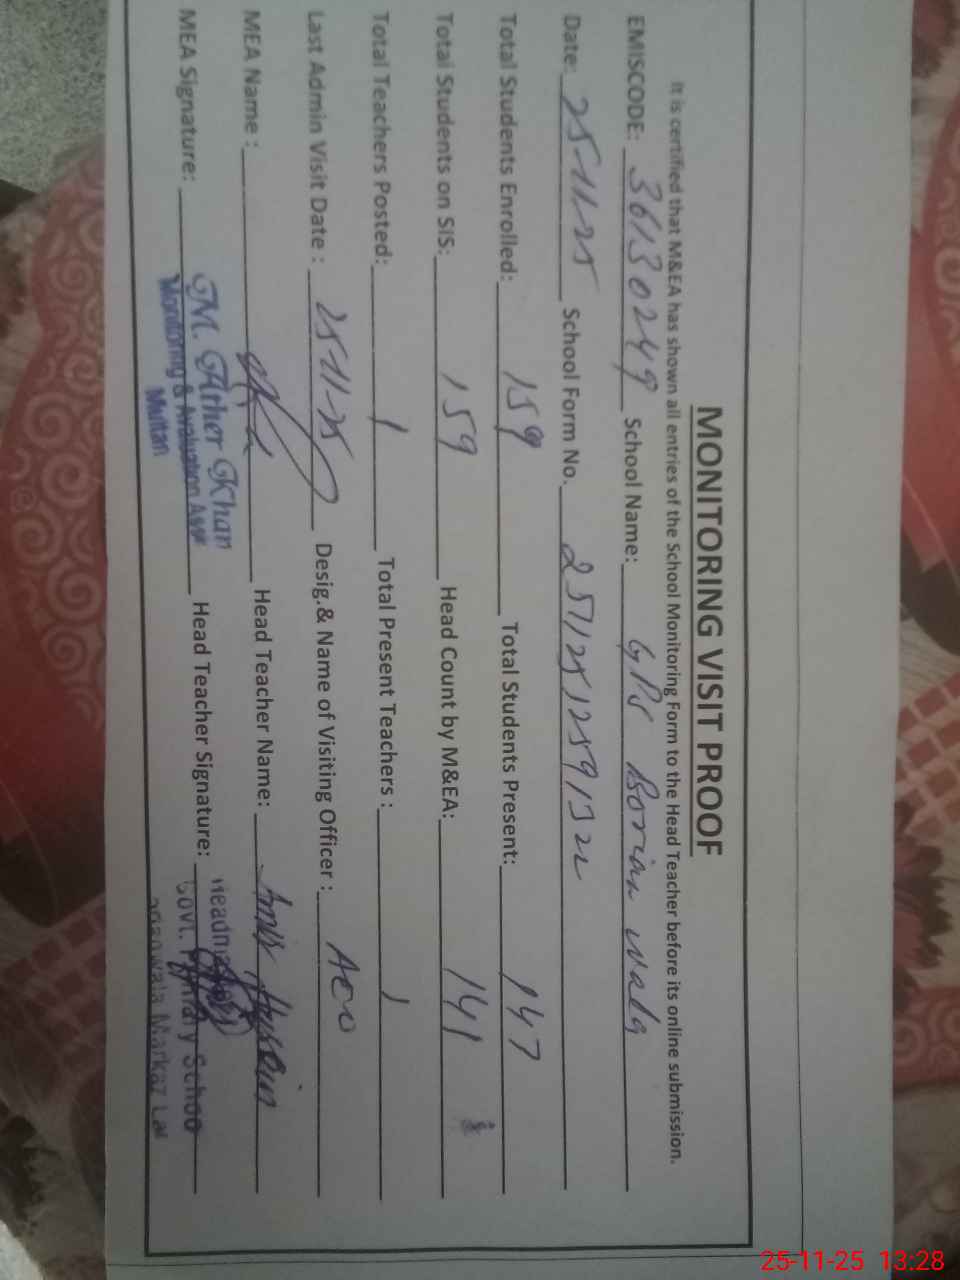 MONITORING VISIT PROOF
It is certified that M&EA has shown all entries of the School Monitoring Form to the Head Teacher before its online submission.
EMISCODE: 36130249 School Name: GPS Borian wala
Date: 25-11-25 School Form No. 
Total Students Enrolled: 159 Total Students Present: 147
Total Students on SIS: 159 Head Count by M&EA: 141
Total Teachers Posted: 1 Total Present Teachers : 1
Last Admin Visit Date : 25-11-25 Desig.& Name of Visiting Officer : AEO
MEA Name : Head Teacher Name:
MEA Signature: Head Teacher Signature:
M. Ather Khan
Monitoring & Evaluation Asst
Multan
Govt. Primary Schoo
Markaz
25-11-25 13:28